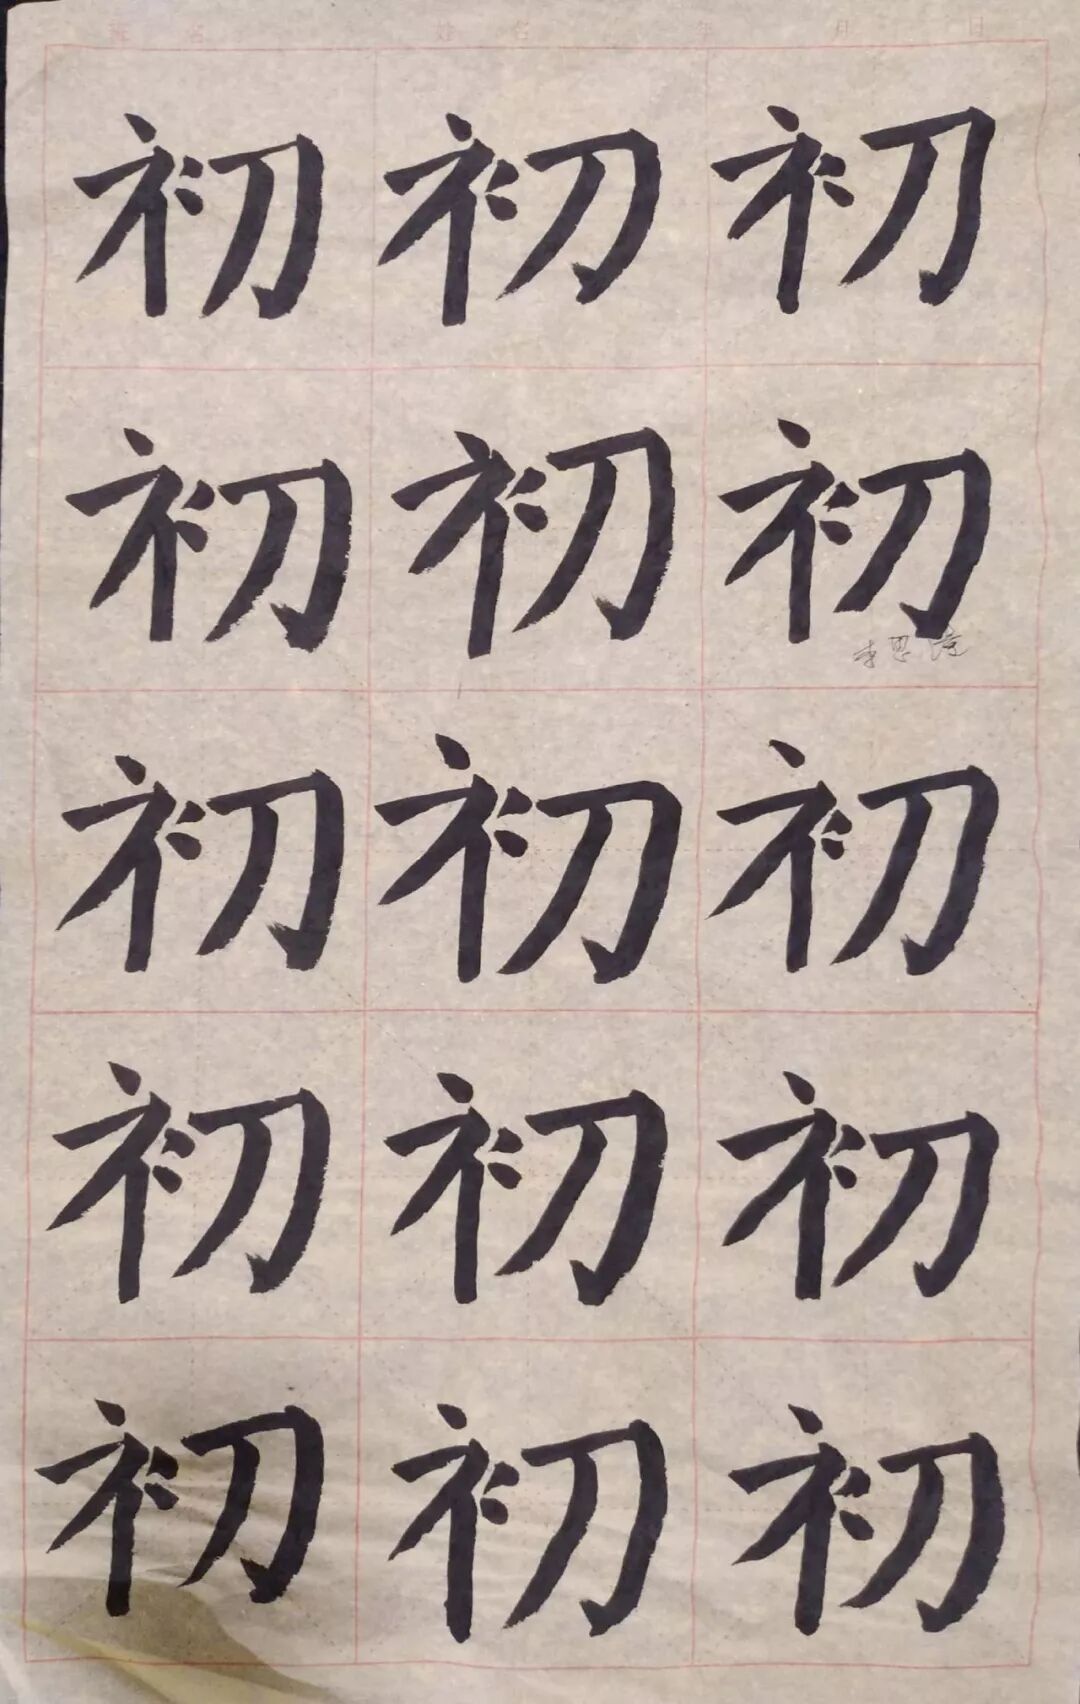 姓名 年 月 日
初 初 初
初 初 初
李思
初 初 初
初 初 初
初 初 初